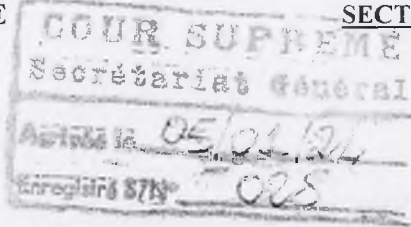 E
SECT
COUR SUPREME
Secrétariat Général
Arrivée le 05/01/24
Enregistré S/N°